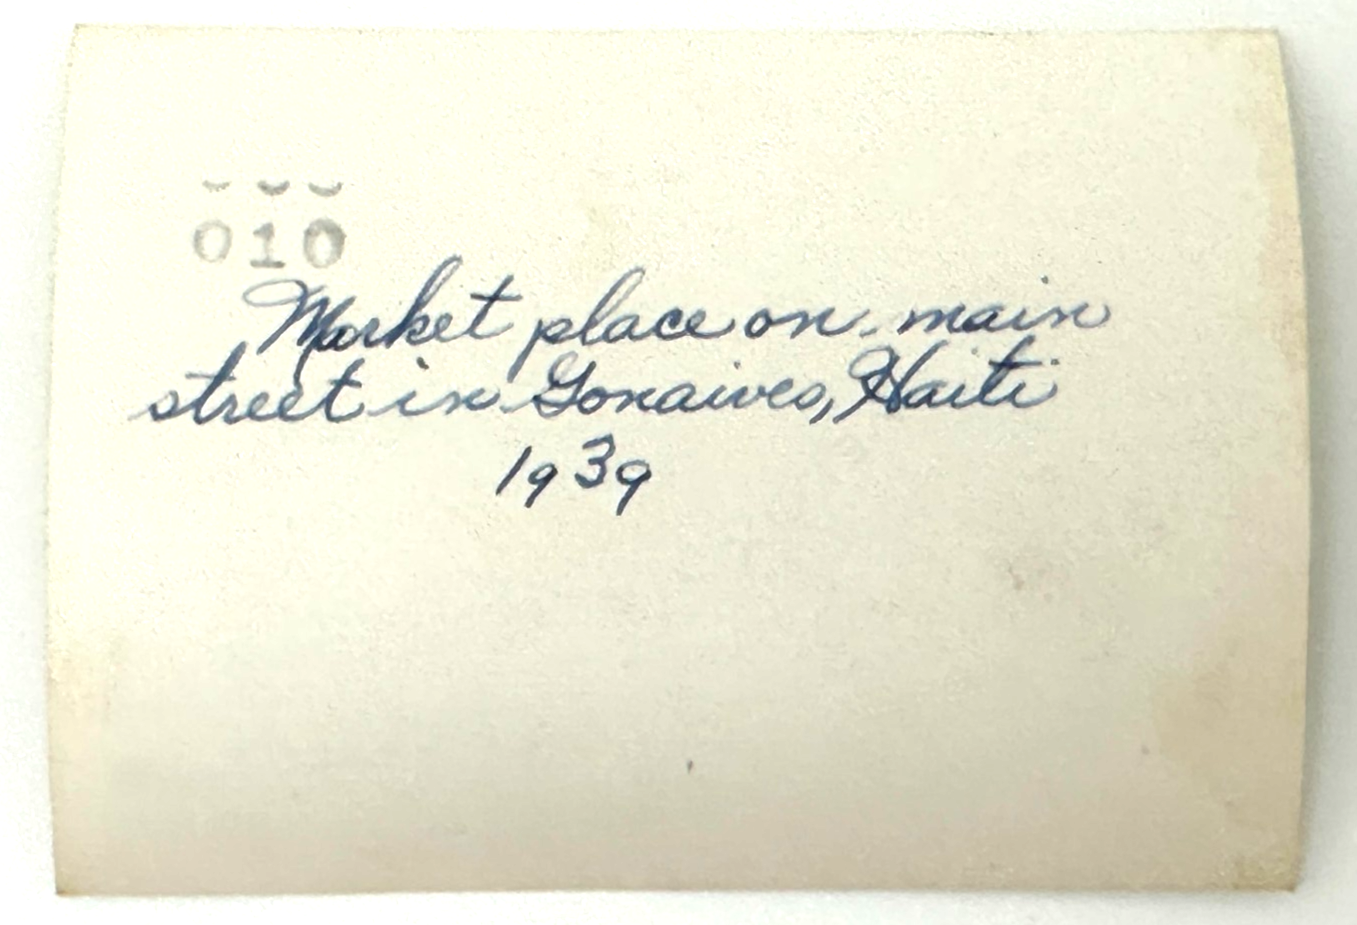 010
Market place on main
street in Gonaives, Haiti
1939